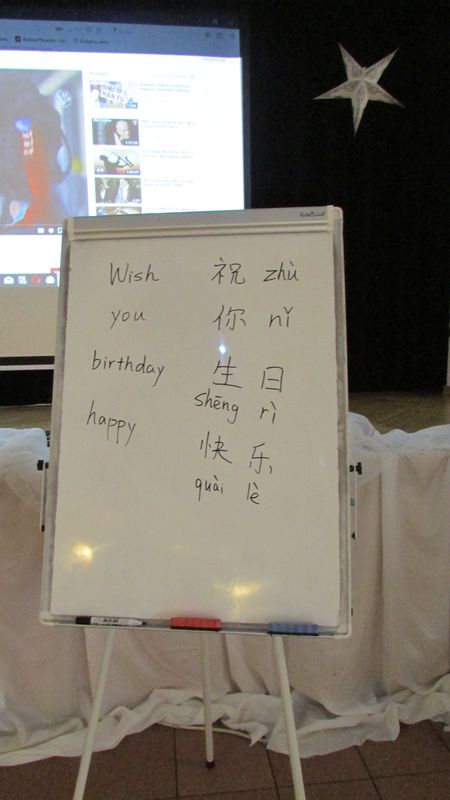 Wish 祝 zhù
you 你 nǐ
birthday 生 日
shēng rì
happy 快 乐
quài lè